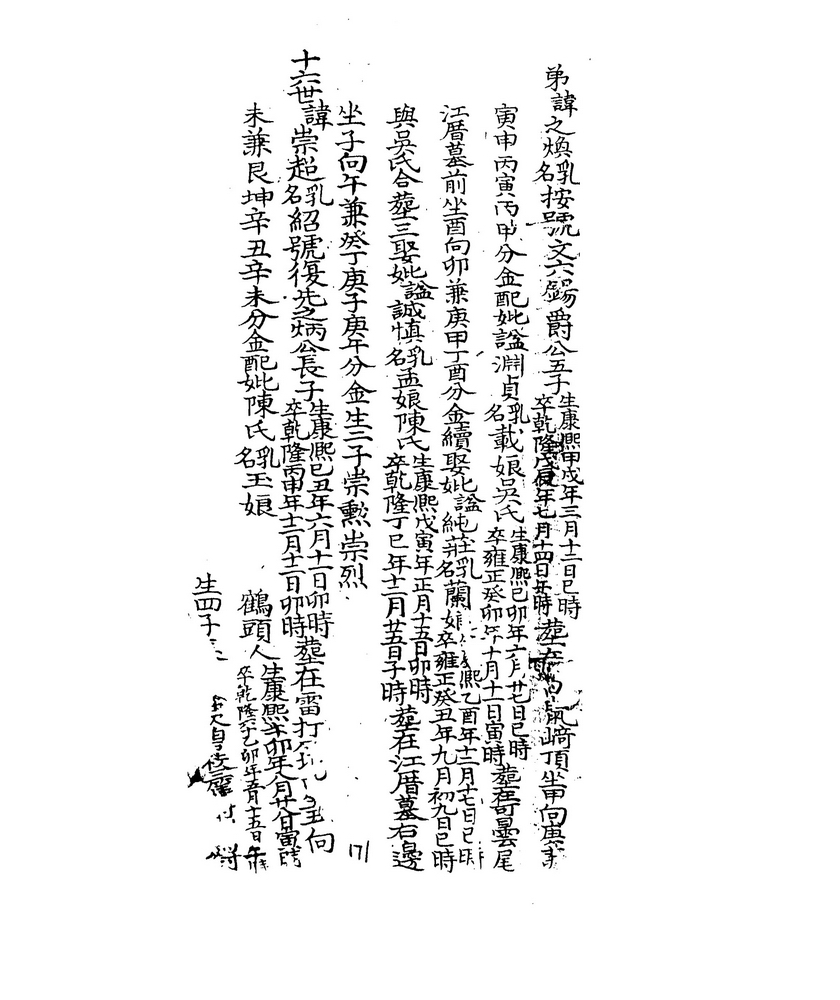 弟諱之煥乳名按號文六錫爵公五子生康熙甲戌年三月十二日巳時卒乾隆戊辰年七月十四日年時葬在鼠﨑頂坐甲向庚兼
寅申丙寅丙申分金配妣謚淵貞乳名載娘吳氏生康熙己卯年六月廿七日巳時卒雍正癸卯年十月十一日寅時葬在可曇尾
江厝墓前坐酉向卯兼庚甲丁酉分金續娶妣謚純莊乳名蘭娘熙乙酉年十二月十七日巳時卒雍正癸丑年九月初九日巳時
與吳氏合葬三娶妣謚誠慎乳名孟娘陳氏生康熙戊寅年正月十五日卯時卒乾隆丁巳年十二月廿五日子時葬在江厝墓右邊
坐子向午兼癸丁庚子庚午分金生二子崇勲崇烈
171
十六世諱崇超乳名紹號復先之炳公長子生康熙己丑年六月十一日卯時卒乾隆丙申年十二月十二日卯時葬在雷打向
未兼艮坤辛丑辛未分金配妣陳氏乳名玉娘鶴頭人生康熙辛卯年八月廿八日寅時卒乾隆乙卯年五月十五日
生四子